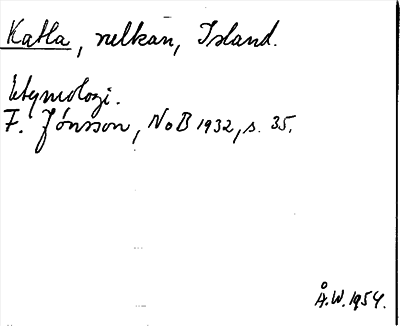 Katla, vulkan, Island.
Etymologi.
F. Jónsson, NoB 1932, s. 35.
Å.W. 1954.